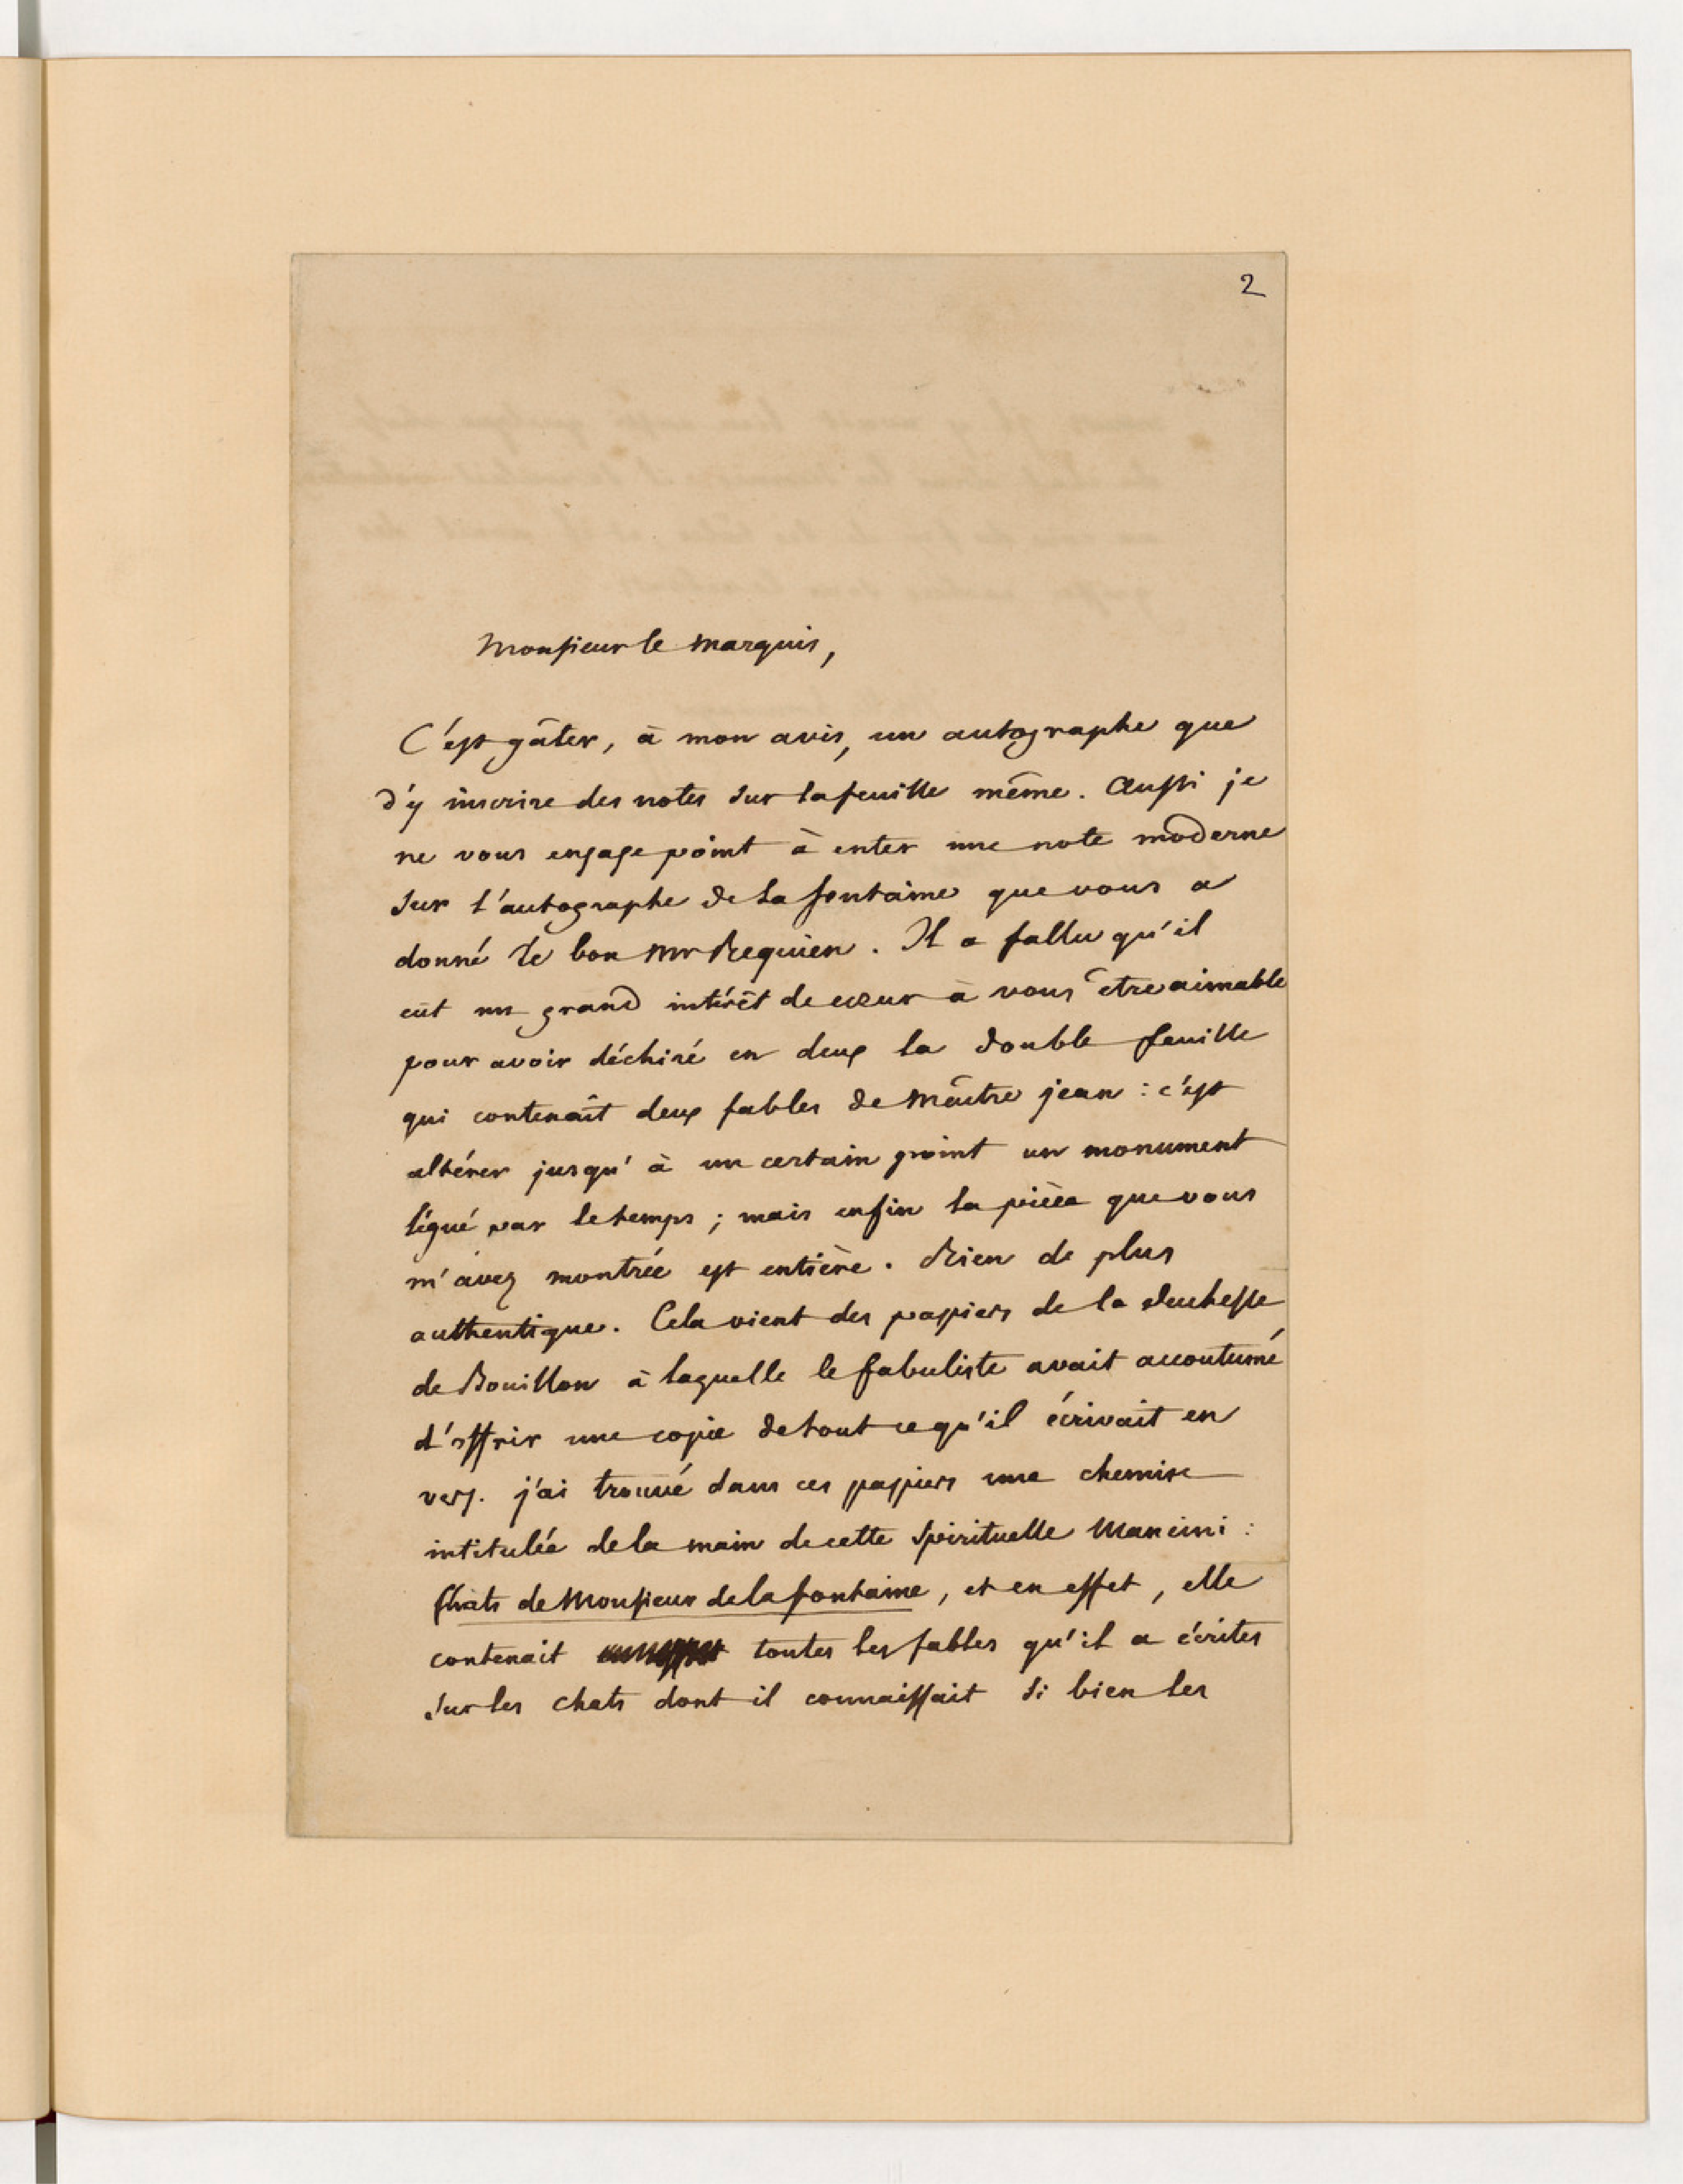 2
Monsieur le Marquis,
C'est gâter, à mon avis, un autographe que
d'y inscrire des notes sur la feuille même. Aussi je
ne vous engage point à enter une note moderne
sur l'autographe de La fontaine que vous a
donné le bon Mr Requien. Il a fallu qu'il
eût un grand intérêt de cœur à vous être aimable
pour avoir déchiré en deux la double feuille
qui contenait deux fables de Maître jean : c'est
altérer jusqu'à un certain point un monument
légué par le temps ; mais enfin la pièce que vous
m'avez montrée est entière. Rien de plus
authentique. Cela vient des papiers de la duchesse
de Bouillon à laquelle le fabuliste avait accoutumé
d'offrir une copie de tout ce qu'il écrivait en
vers. j'ai trouvé dans ces papiers une chemise
intitulée de la main de cette spirituelle Mancini :
Chats de Monsieur de la fontaine, et en effet, elle
contenait toutes les fables qu'il a écrites
sur les chats dont il connaissait si bien les